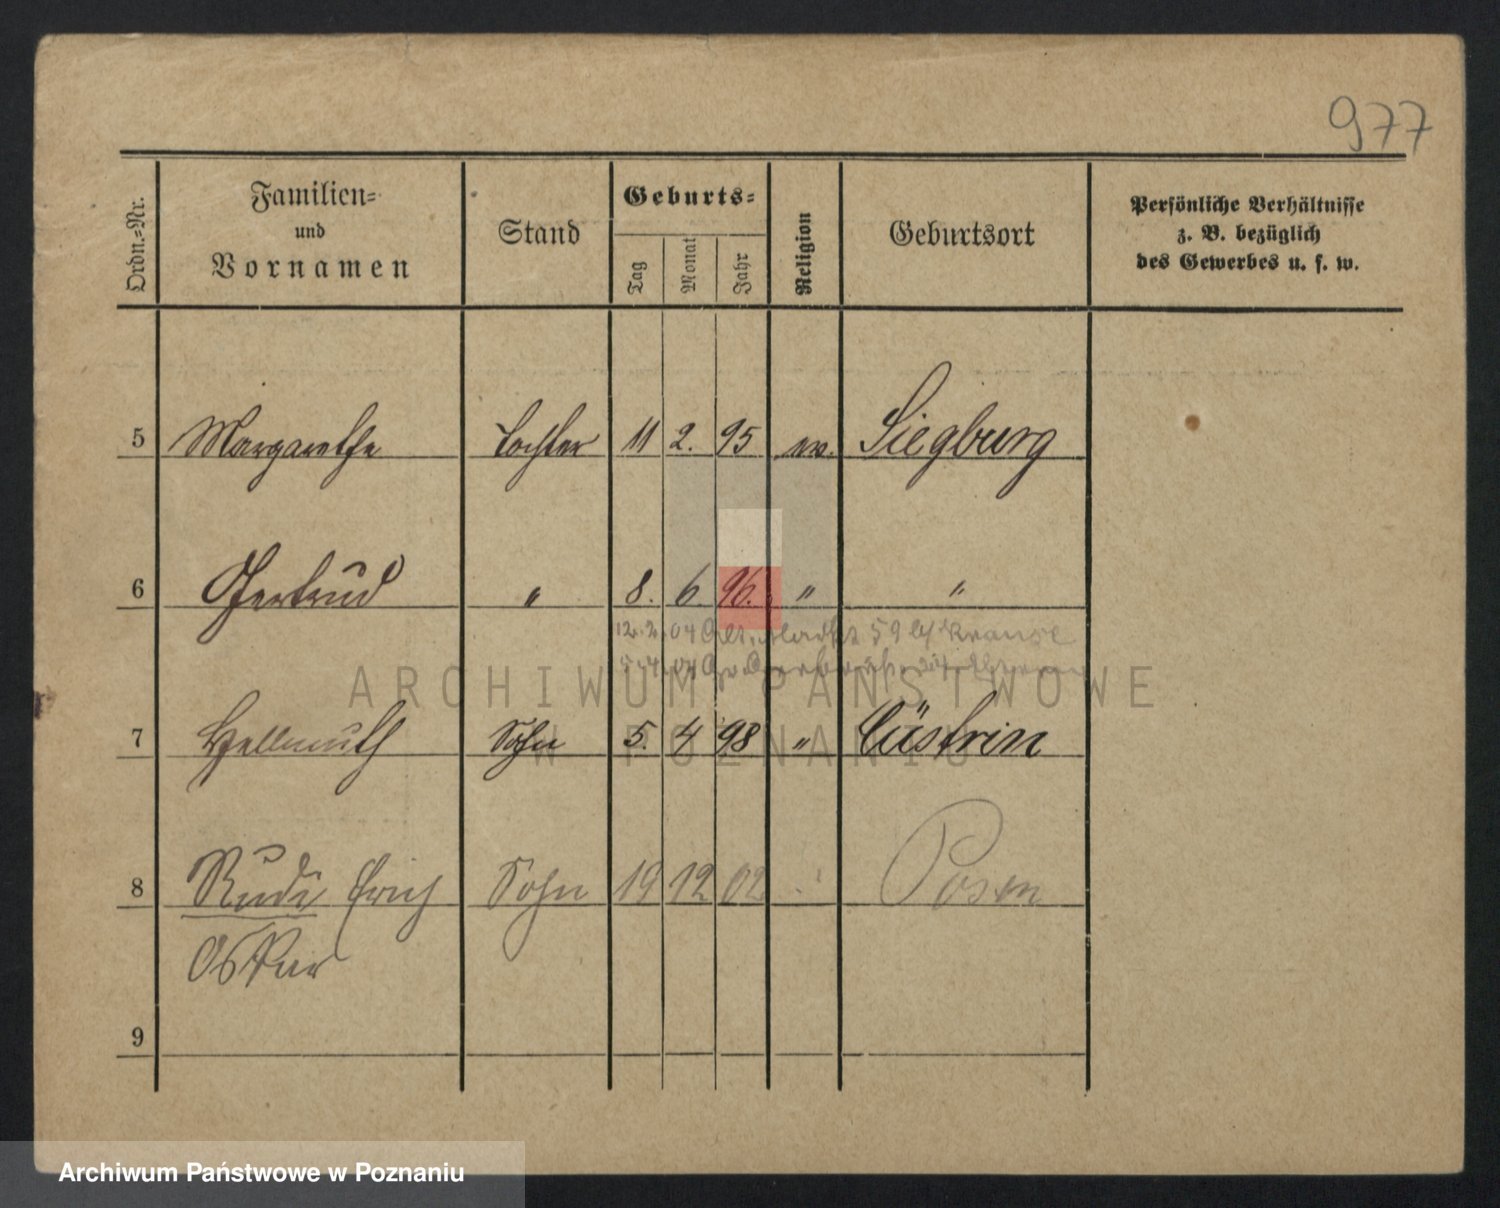 977
Ordn.-Nr. Familien- und Vornamen Stand Geburts- Tag Monat Jahr Religion Geburtsort Persönliche Verhältnisse z. B. bezüglich des Gewerbes u. s. w.
5 Margarethe Tochter 11 2. 95 ev. Siegburg
6 Gertrud " 8. 6. 96. " "
12. 2. 04 59 Krause
5. 4. 04
ARCHIWUM PAŃSTWOWE
W POZNANIU
7 Hellmuth Sohn 5. 4 98 " Cüstrin
8 Rudi Erich Sohn 19 12 02 Posen
Oskar
9
Archiwum Państwowe w Poznaniu